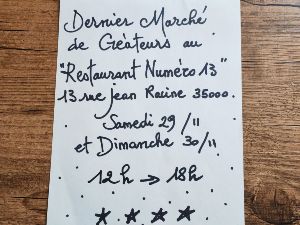 Dernier Marché
de Créateurs au
"Restaurant Numéro 13"
13 rue Jean Racine 35000.
Samedi 29/11
et Dimanche 30/11
12h → 18h